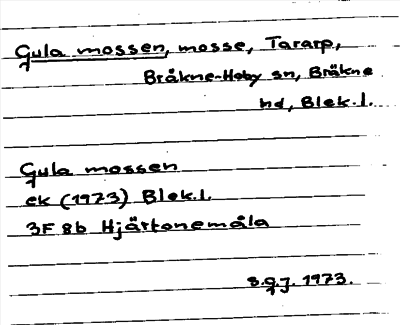 Gula mossen, mosse, Tararp,
Bräkne-Hoby sn, Bräkne
hd, Blek.l.
Gula mossen
ek (1973) Blek.l.
3F 8b Hjärtonemåla
s.g.j. 1973.